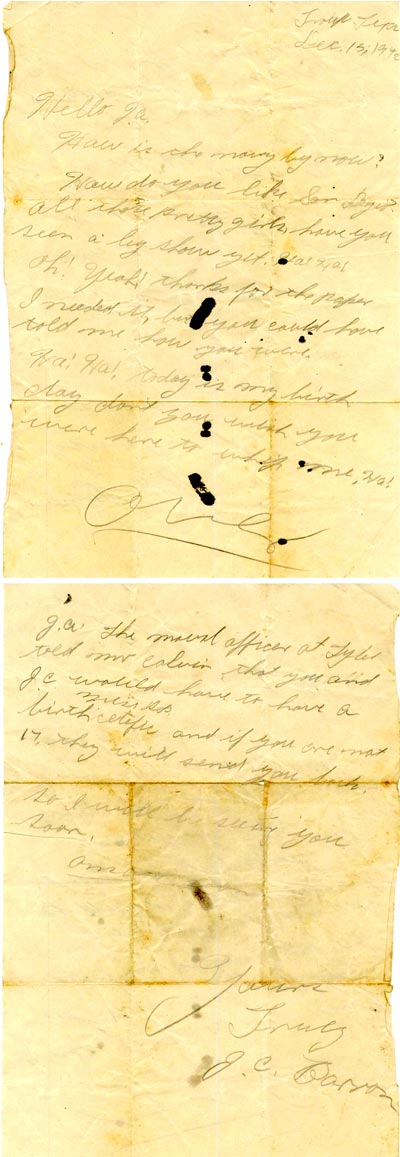 Dec. 15, 1942
Hello J.a.
How is the navy by now?
How do you like San Diego.
all those pretty girls, have you
seen a leg show yet. Ha! Ha!
Oh! Yeah! thanks for the paper
I needed it, but you could have
told me how you were.
Ha! Ha! today is my birth
day don't you wish you
were here to whip me, Ha!
Over
J.a. The naval officer at Tyler
told mr calvin that you and
J.C. would have to have a
birth and if you are not
17, they will send you back.
so I will be seeing you
soon.
Yours
Truly
J. C. Barron